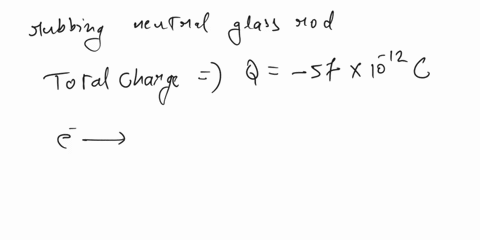 rubbing neutral glass rod
Total Charge => Q = -57 × 10⁻¹² C
e⁻ →